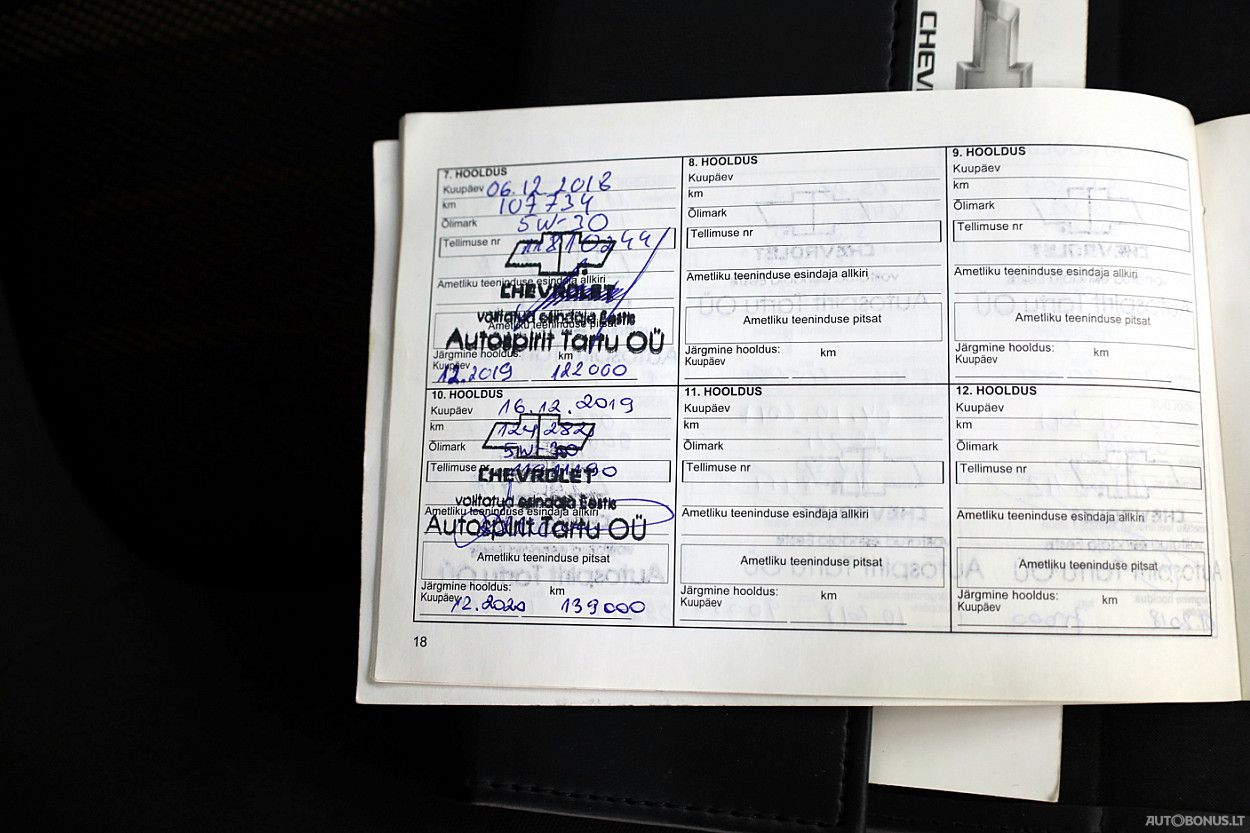 CHEV
7. HOOLDUS
Kuupäev 06.12.2018
km 107734
Õlimark 5W-30
Tellimuse nr
Ametliku teeninduse esindaja allkiri
CHEVROLET
volitatud esindaja Eestis
Ametliku teeninduse pitsat
Autospirit Tartu OÜ
Järgmine hooldus: km
Kuupäev 12.2019 122000
8. HOOLDUS
Kuupäev
km
Õlimark
Tellimuse nr
Ametliku teeninduse esindaja allkiri
Ametliku teeninduse pitsat
Järgmine hooldus: km
Kuupäev
9. HOOLDUS
Kuupäev
km
Õlimark
Tellimuse nr
Ametliku teeninduse esindaja allkiri
Ametliku teeninduse pitsat
Järgmine hooldus: km
Kuupäev
10. HOOLDUS
Kuupäev 16.12.2019
km
Õlimark 5W-30
Tellimuse nr
CHEVROLET
volitatud esindaja Eestis
Ametliku teeninduse esindaja allkiri
Autospirit Tartu OÜ
Ametliku teeninduse pitsat
Järgmine hooldus: km
Kuupäev 12.2020 139000
11. HOOLDUS
Kuupäev
km
Õlimark
Tellimuse nr
Ametliku teeninduse esindaja allkiri
Ametliku teeninduse pitsat
Järgmine hooldus: km
Kuupäev
12. HOOLDUS
Kuupäev
km
Õlimark
Tellimuse nr
Ametliku teeninduse esindaja allkiri
Ametliku teeninduse pitsat
Järgmine hooldus: km
Kuupäev
18
AUTOBONUS.LT